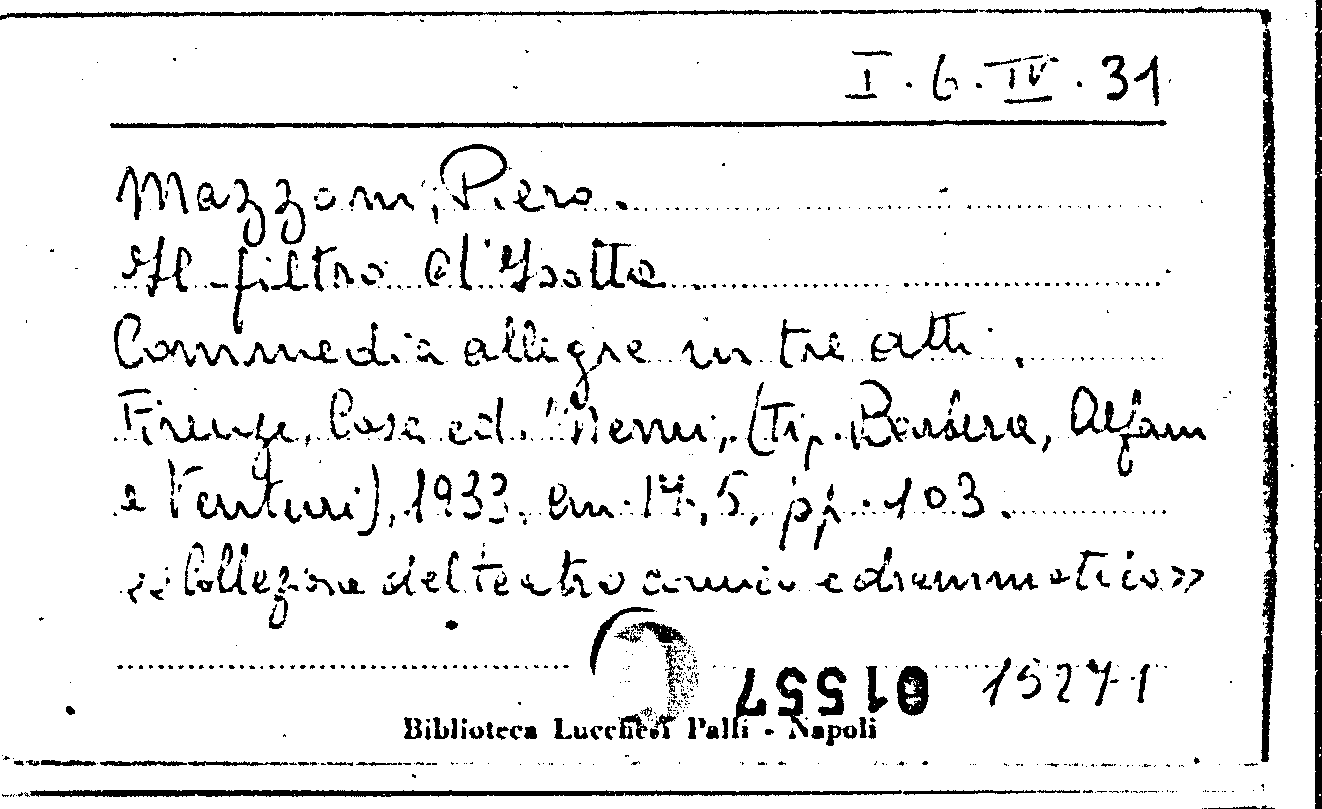 I. 6. IV. 31
Mazzoni, Piero.
Il filtro d'Isotta.
Commedia allegra in tre atti.
Firenze, Casa ed. "Nemi", (Tip. Barbera, Alfani
e Venturi), 1933, cm. 17,5, pp. 103.
«Collezione del teatro comico e drammatico»
01557 15271
Biblioteca Lucchesi Palli - Napoli